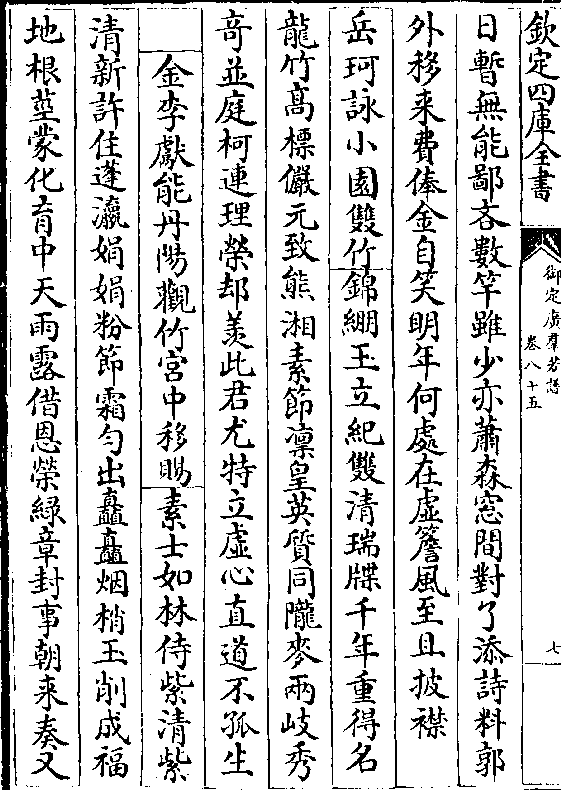 欽定四庫全書
御定廣羣芳譜
卷八十五
七
日暫無能鄙吝數竿雖少亦蕭森窓間對了添詩料郭
外移来費俸金自笑明年何處在虚簷風至且披襟
岳珂詠小園雙竹錦綳玉立紀雙清瑞牒千年重得名
龍竹髙標儼元致熊湘素節凛皇英質同隴麥兩岐秀
竒並庭柯連理榮却羡此君尤特立虚心直道不孤生
金李獻能丹陽觀竹宫中移賜素士如林侍紫清紫
清新許住蓬瀛娟娟粉節霜勻出矗矗烟梢玉削成福
地根莖蒙化育中天雨露借恩榮綠章封事朝来奏又